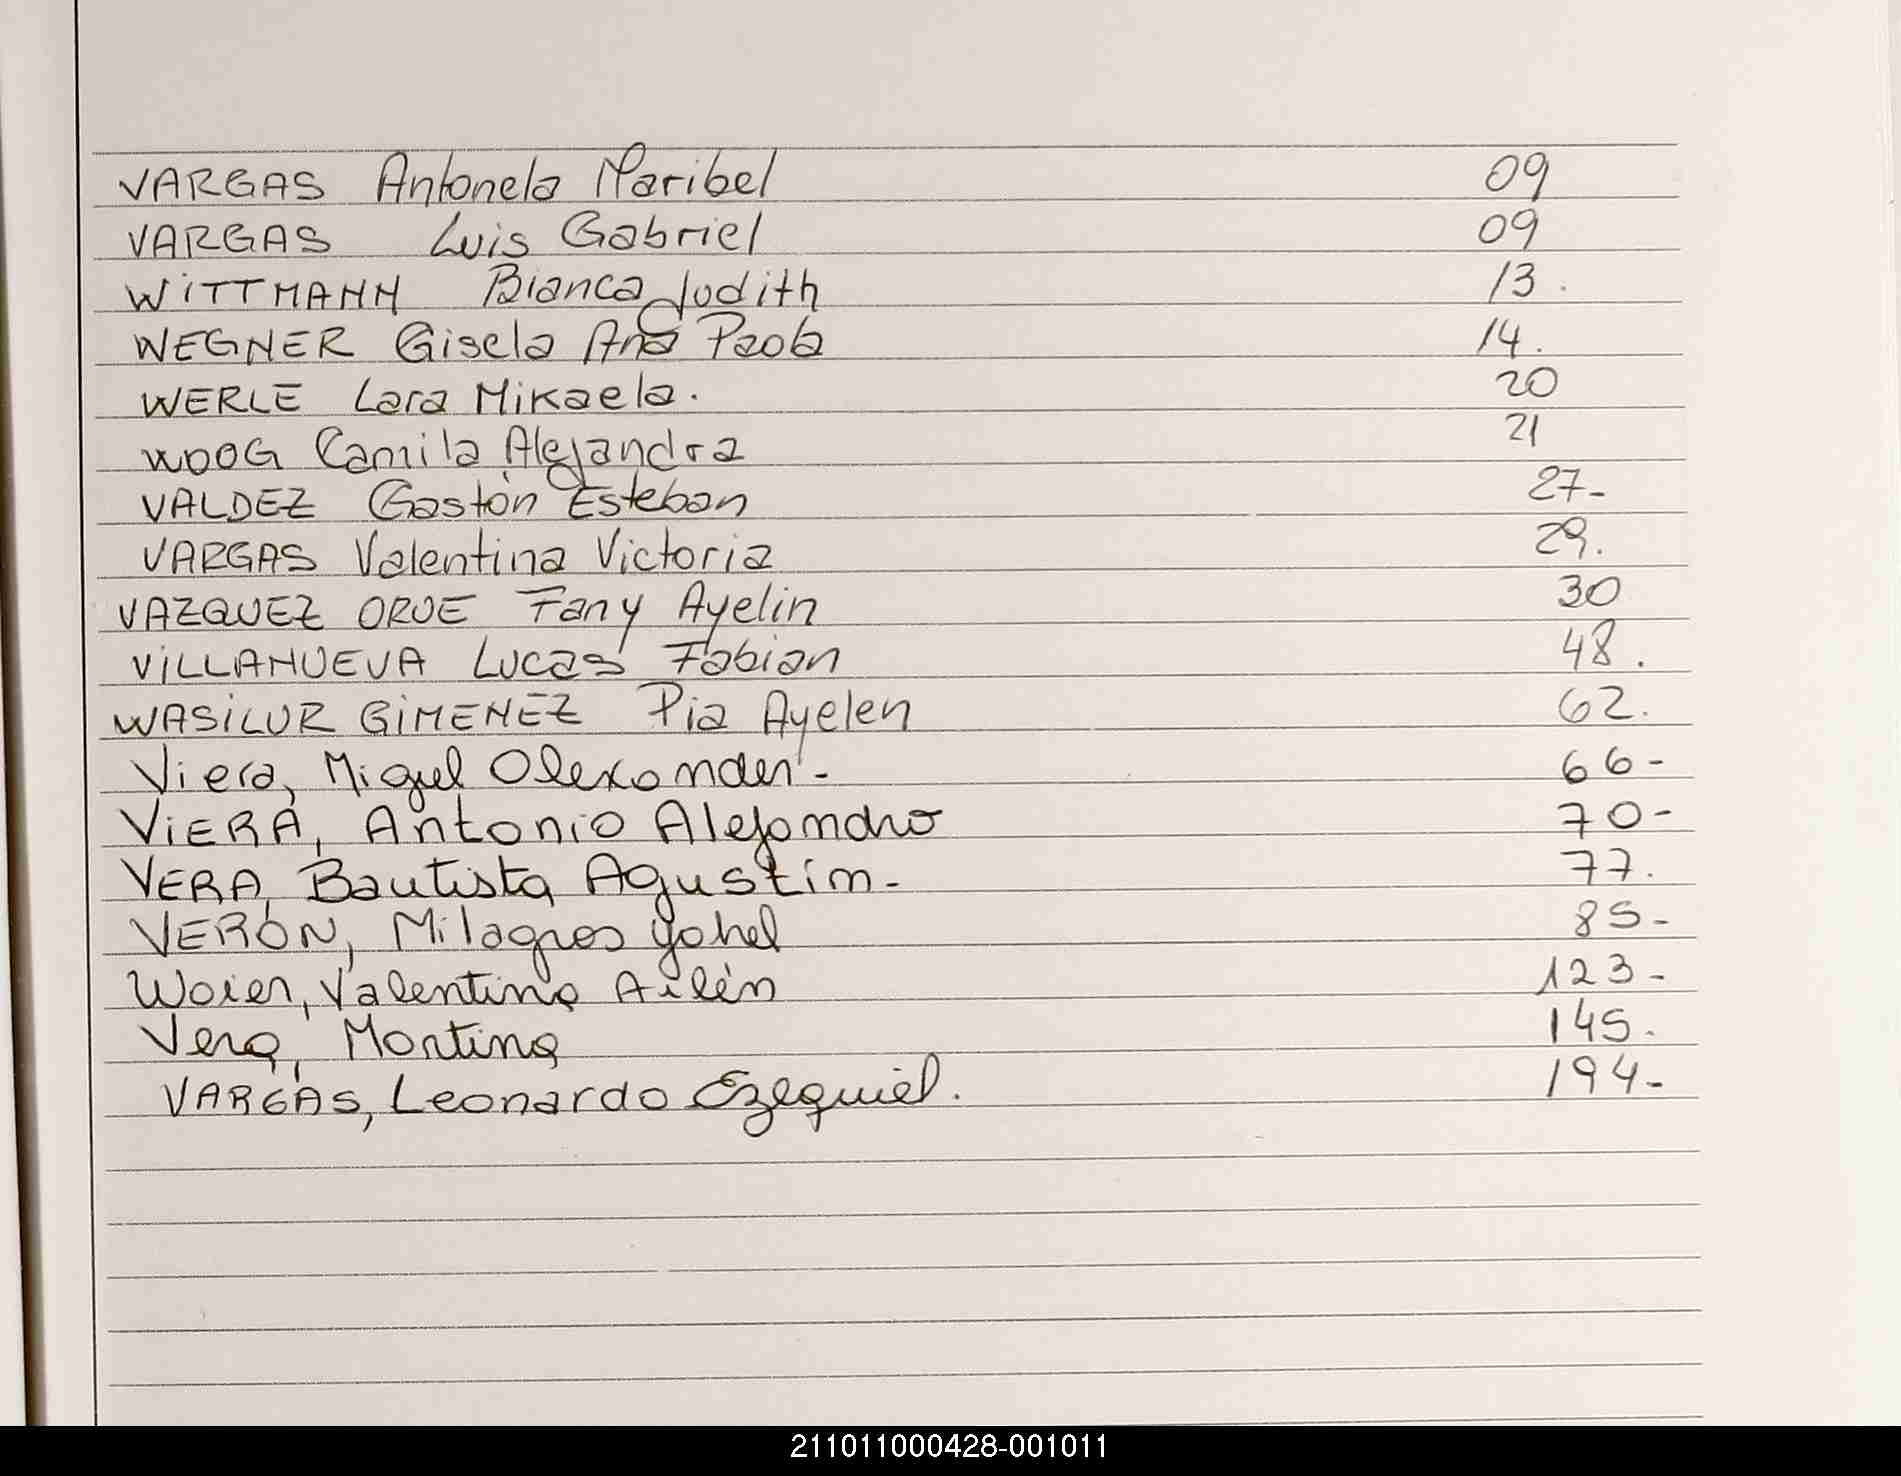 VARGAS Antonela Maribel 09
VARGAS Luis Gabriel 09
WiTTMANN Bianca Judith 13.
WEGNER Gisela Ana Paola 14.
WERLE Lara Mikaela. 20
WOOG Camila Alejandra 21
VALDEZ Gastón Esteban 27-
VARGAS Valentina Victoria 29.
VAZQUEZ ORUE Fany Ayelin 30
ViLLANUEVA Lucas Fabian 48.
WASiLUR GiMENEZ Pia Ayelen 62.
Viera, Miguel Olexander- 66-
ViERA, Antonio Alejandro 70-
VERA, Bautista Agustin- 77.
VERÓN, Milagros Yohel 85-
Woier, Valentina Ailén 123-
Vera, Martina 145.
VARGAS, Leonardo Ezequiel. 194-
211011000428-001011